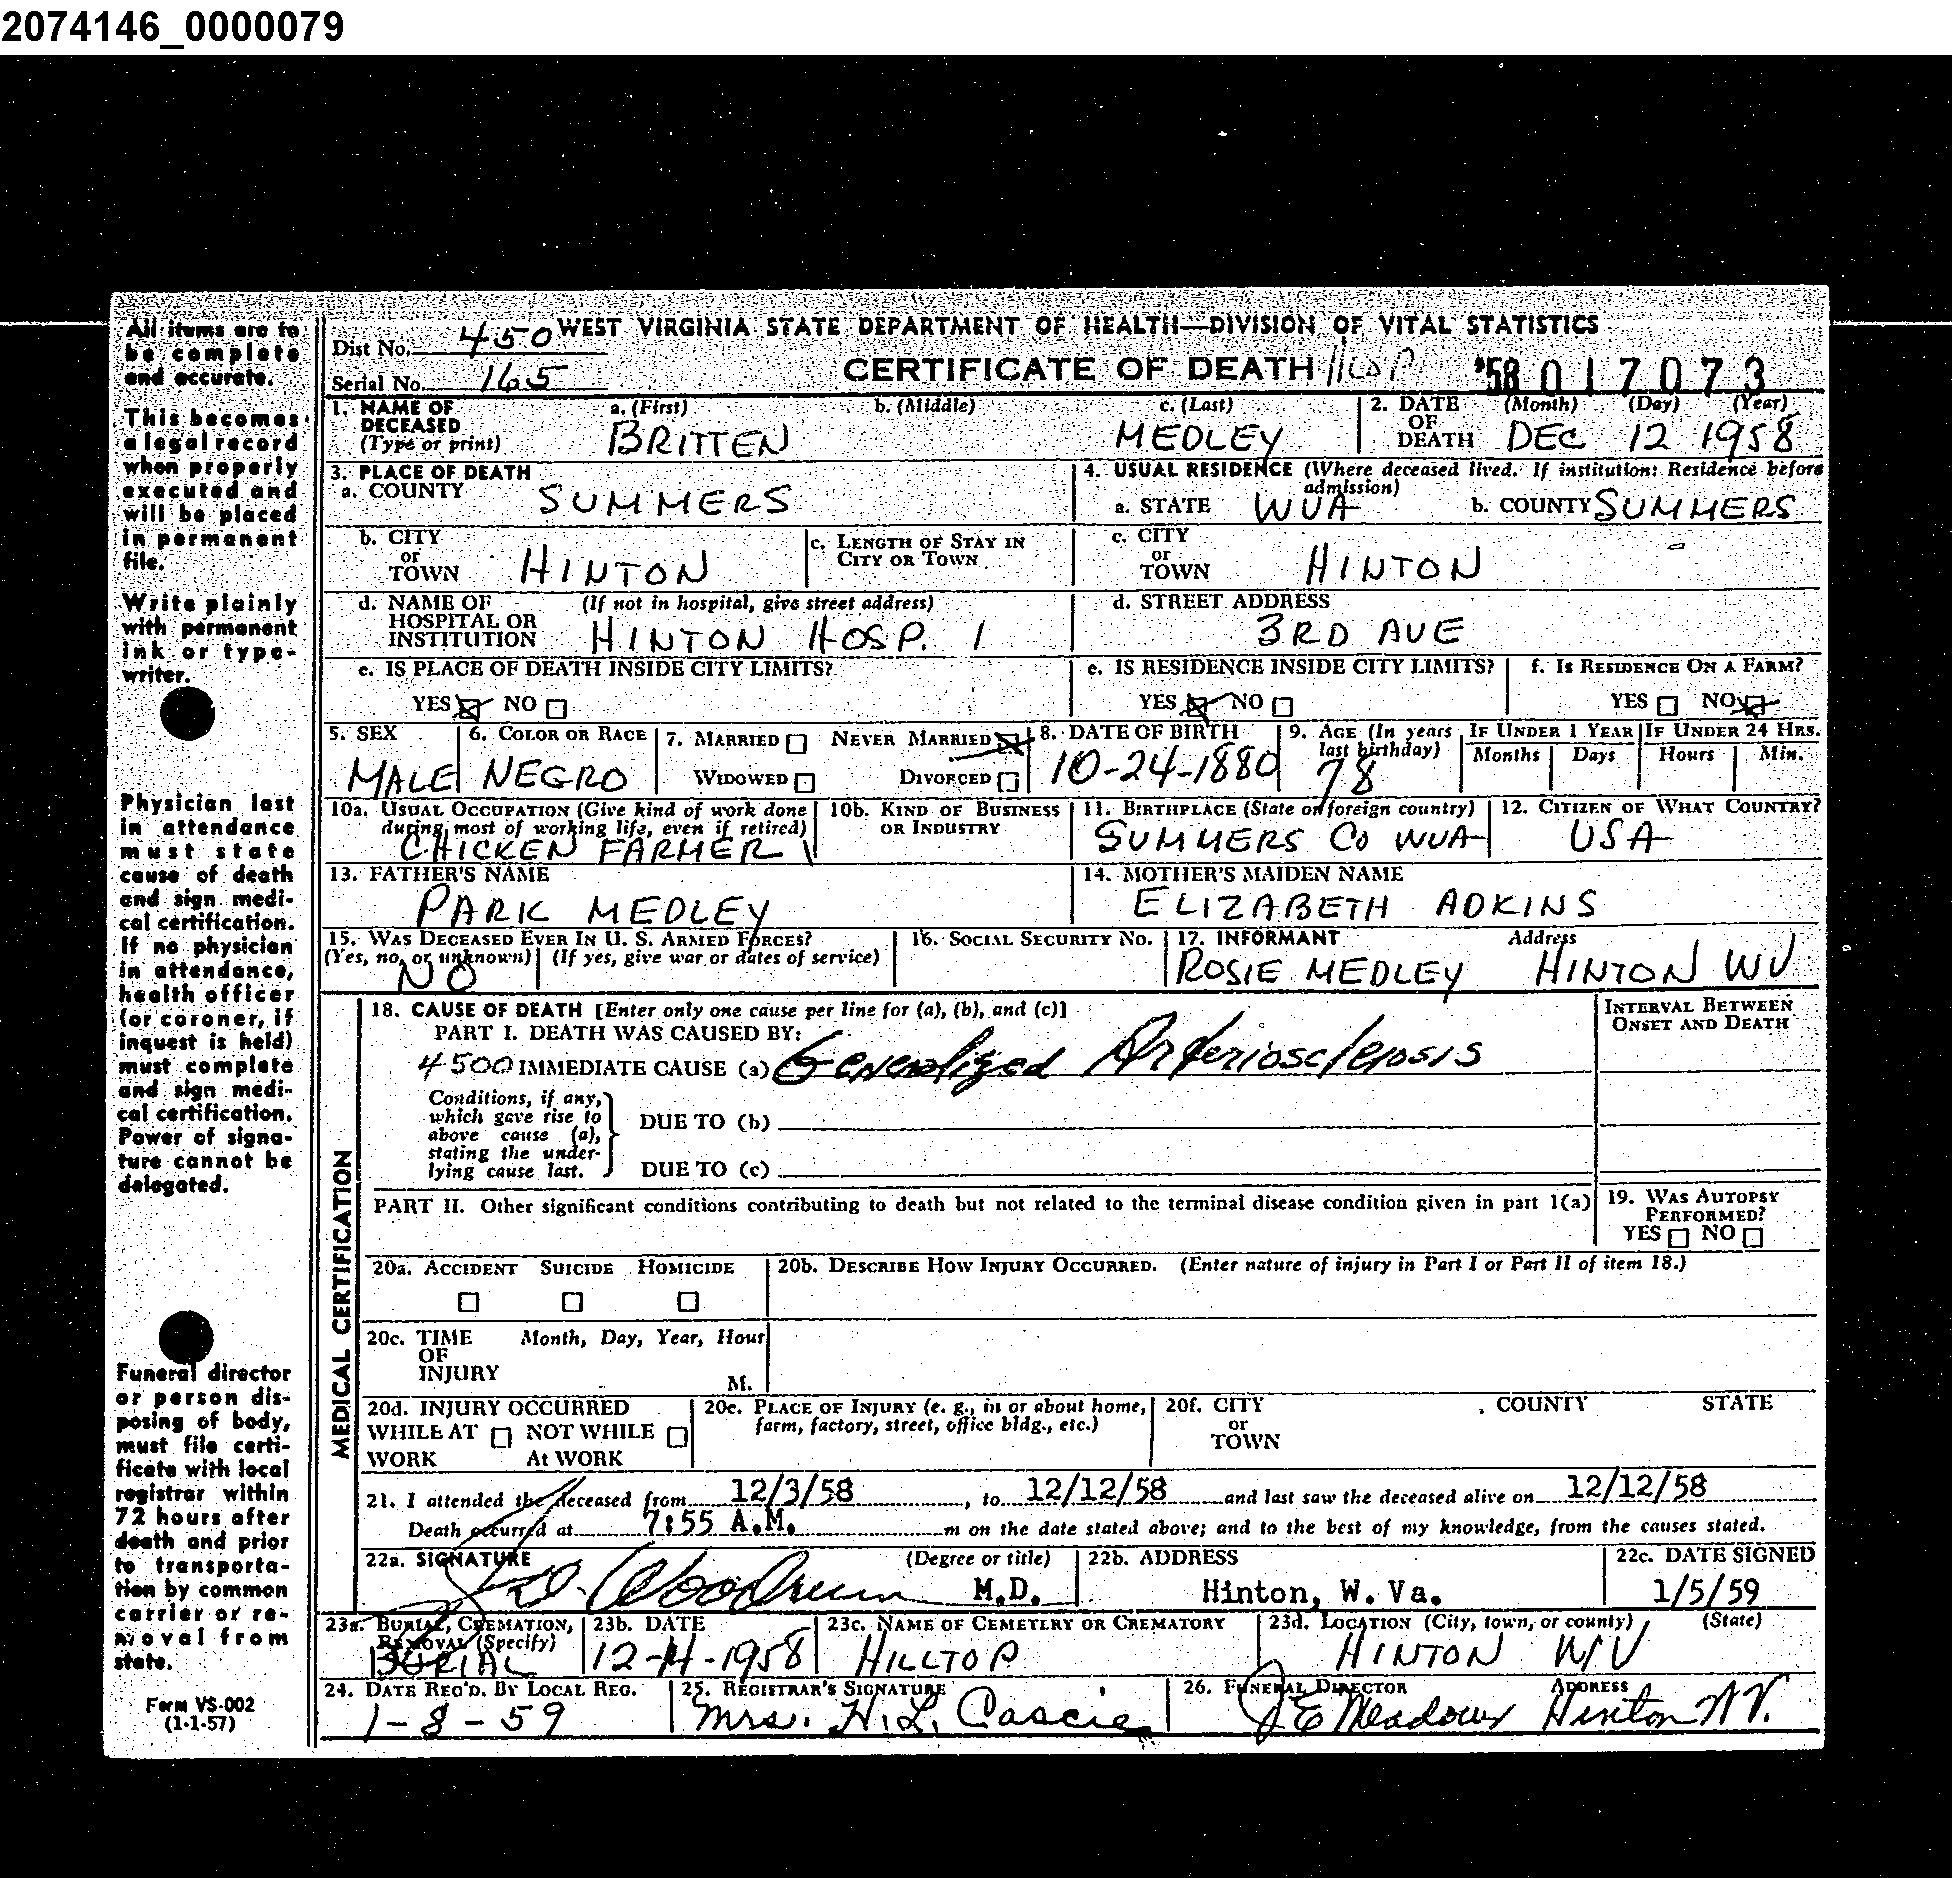 2074146_0000079
All items are to
be complete
and accurate.
This becomes
a legal record
when properly
executed and
will be placed
in permanent
file.
Write plainly
with permanent
ink or type-
writer.
Physician last
in attendance
must state
cause of death
and sign medi-
cal certification.
If no physician
in attendance,
health officer
(or coroner, if
inquest is held)
must complete
and sign medi-
cal certification.
Power of signa-
ture cannot be
delegated.
Funeral director
or person dis-
posing of body,
must file certi-
ficate with local
registrar within
72 hours after
death and prior
to transporta-
tion by common
carrier or re-
moval from
state.
Form VS-002
(1-1-57)
WEST VIRGINIA STATE DEPARTMENT OF HEALTH—DIVISION OF VITAL STATISTICS
Dist No. 450
Serial No. 165
CERTIFICATE OF DEATH
'58 017073
1. NAME OF DECEASED (Type or print) a. (First) b. (Middle) c. (Last)
BRITTEN MEDLEY
2. DATE OF DEATH (Month) (Day) (Year)
DEC 12 1958
3. PLACE OF DEATH
a. COUNTY SUMMERS
4. USUAL RESIDENCE (Where deceased lived. If institution: Residence before admission)
a. STATE WVA b. COUNTY SUMMERS
b. CITY or TOWN HINTON
c. LENGTH OF STAY IN CITY OR TOWN
c. CITY or TOWN HINTON
d. NAME OF HOSPITAL OR INSTITUTION (If not in hospital, give street address)
HINTON HOSP. 1
d. STREET ADDRESS
3RD AVE
e. IS PLACE OF DEATH INSIDE CITY LIMITS?
YES NO
e. IS RESIDENCE INSIDE CITY LIMITS?
YES NO
f. IS RESIDENCE ON A FARM?
YES NO
5. SEX
MALE
6. COLOR OR RACE
NEGRO
7. MARRIED NEVER MARRIED
WIDOWED DIVORCED
8. DATE OF BIRTH
10-24-1880
9. AGE (In years last birthday)
78
IF UNDER 1 YEAR
Months Days
IF UNDER 24 HRS.
Hours Min.
10a. USUAL OCCUPATION (Give kind of work done
during most of working life, even if retired)
CHICKEN FARMER
10b. KIND OF BUSINESS OR INDUSTRY
11. BIRTHPLACE (State or foreign country)
SUMMERS CO WVA
12. CITIZEN OF WHAT COUNTRY?
USA
13. FATHER'S NAME
PARK MEDLEY
14. MOTHER'S MAIDEN NAME
ELIZABETH ADKINS
15. WAS DECEASED EVER IN U. S. ARMED FORCES?
(Yes, no, or unknown) (If yes, give war or dates of service)
NO
16. SOCIAL SECURITY NO.
17. INFORMANT Address
ROSIE MEDLEY HINTON WV
MEDICAL CERTIFICATION
18. CAUSE OF DEATH [Enter only one cause per line for (a), (b), and (c)]
PART I. DEATH WAS CAUSED BY:
INTERVAL BETWEEN ONSET AND DEATH
4500 IMMEDIATE CAUSE (a) Generalized Arteriosclerosis
Conditions, if any,
which gave rise to
above cause (a),
stating the under-
lying cause last.
DUE TO (b)
DUE TO (c)
PART II. Other significant conditions contributing to death but not related to the terminal disease condition given in part 1(a)
19. WAS AUTOPSY PERFORMED?
YES NO
20a. ACCIDENT SUICIDE HOMICIDE
20b. DESCRIBE HOW INJURY OCCURRED. (Enter nature of injury in Part I or Part II of item 18.)
20c. TIME OF INJURY Month, Day, Year, Hour
M.
20d. INJURY OCCURRED
WHILE AT WORK NOT WHILE At WORK
20e. PLACE OF INJURY (e. g., in or about home,
farm, factory, street, office bldg., etc.)
20f. CITY or TOWN COUNTY STATE
21. I attended the deceased from 12/3/58, to 12/12/58 and last saw the deceased alive on 12/12/58
Death occurred at 7:55 A.M. m on the date stated above; and to the best of my knowledge, from the causes stated.
22a. SIGNATURE (Degree or title)
M.D.
22b. ADDRESS
Hinton, W. Va.
22c. DATE SIGNED
1/5/59
23a. BURIAL, CREMATION,
REMOVAL (Specify)
BURIAL
23b. DATE
12-14-1958
23c. NAME OF CEMETERY OR CREMATORY
HILLTOP
23d. LOCATION (City, town, or county) (State)
HINTON WV
24. DATE REC'D. BY LOCAL REG.
1-8-59
25. REGISTRAR'S SIGNATURE
Mrs. H. L. Cascie
26. FUNERAL DIRECTOR ADDRESS
J E Meadows Hinton WV.